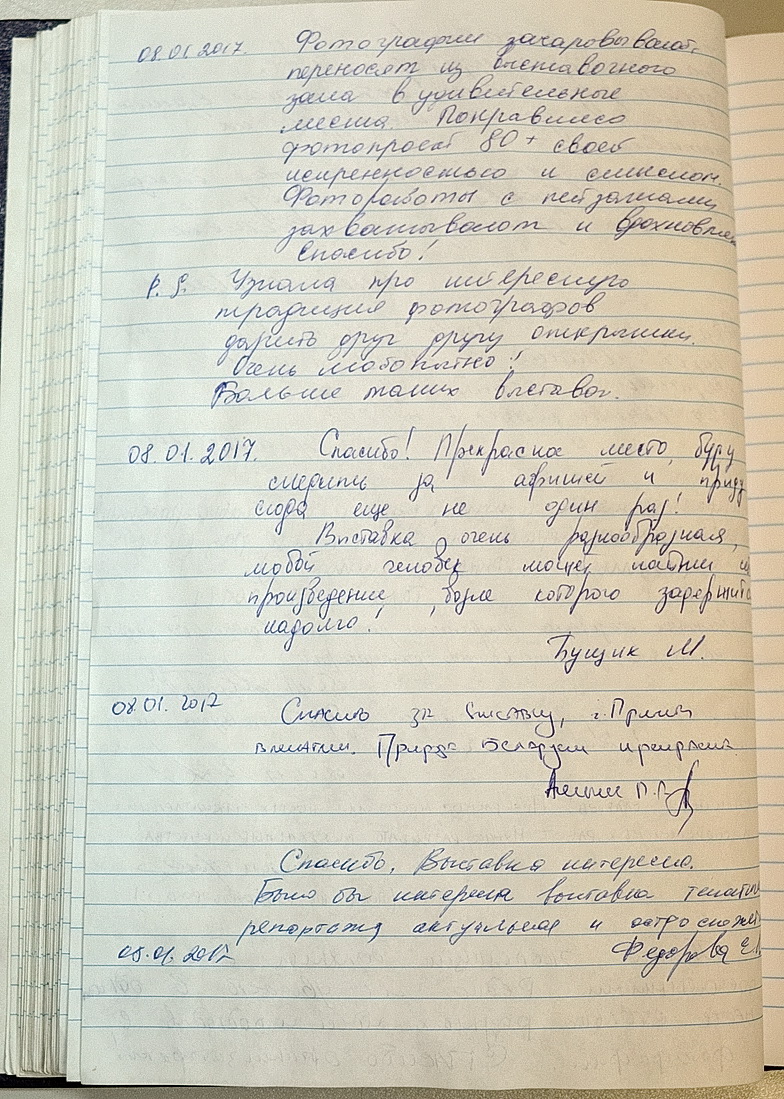 08.01.2017. Фотографии зачаровывают,
переносят из выставочного
зала в удивительные
места. Понравился
фотопроект 80+ своей
искренностью и смыслом.
Фотоработы с пейзажами
захватывают и вдохновляю
Спасибо!
P.S. Узнала про интересную
традицию фотографов
дарить друг другу открытки.
Очень любопытно!
Больше таких выставок.
08.01.2017. Спасибо! Прекрасное место, буду
следить за афишей и приду
сюда еще не один раз!
Выставка очень разнообразная,
любой человек может найти
произведение, возле которого задержится
надолго!
Бущик М.
08.01.2017 Спасибо за выставку,
Беларуси прекрасна.
Спасибо. Выставка интересна.
Было бы интересна выставка
репортажа актуальная и
05.01.2017 Федорова Е.